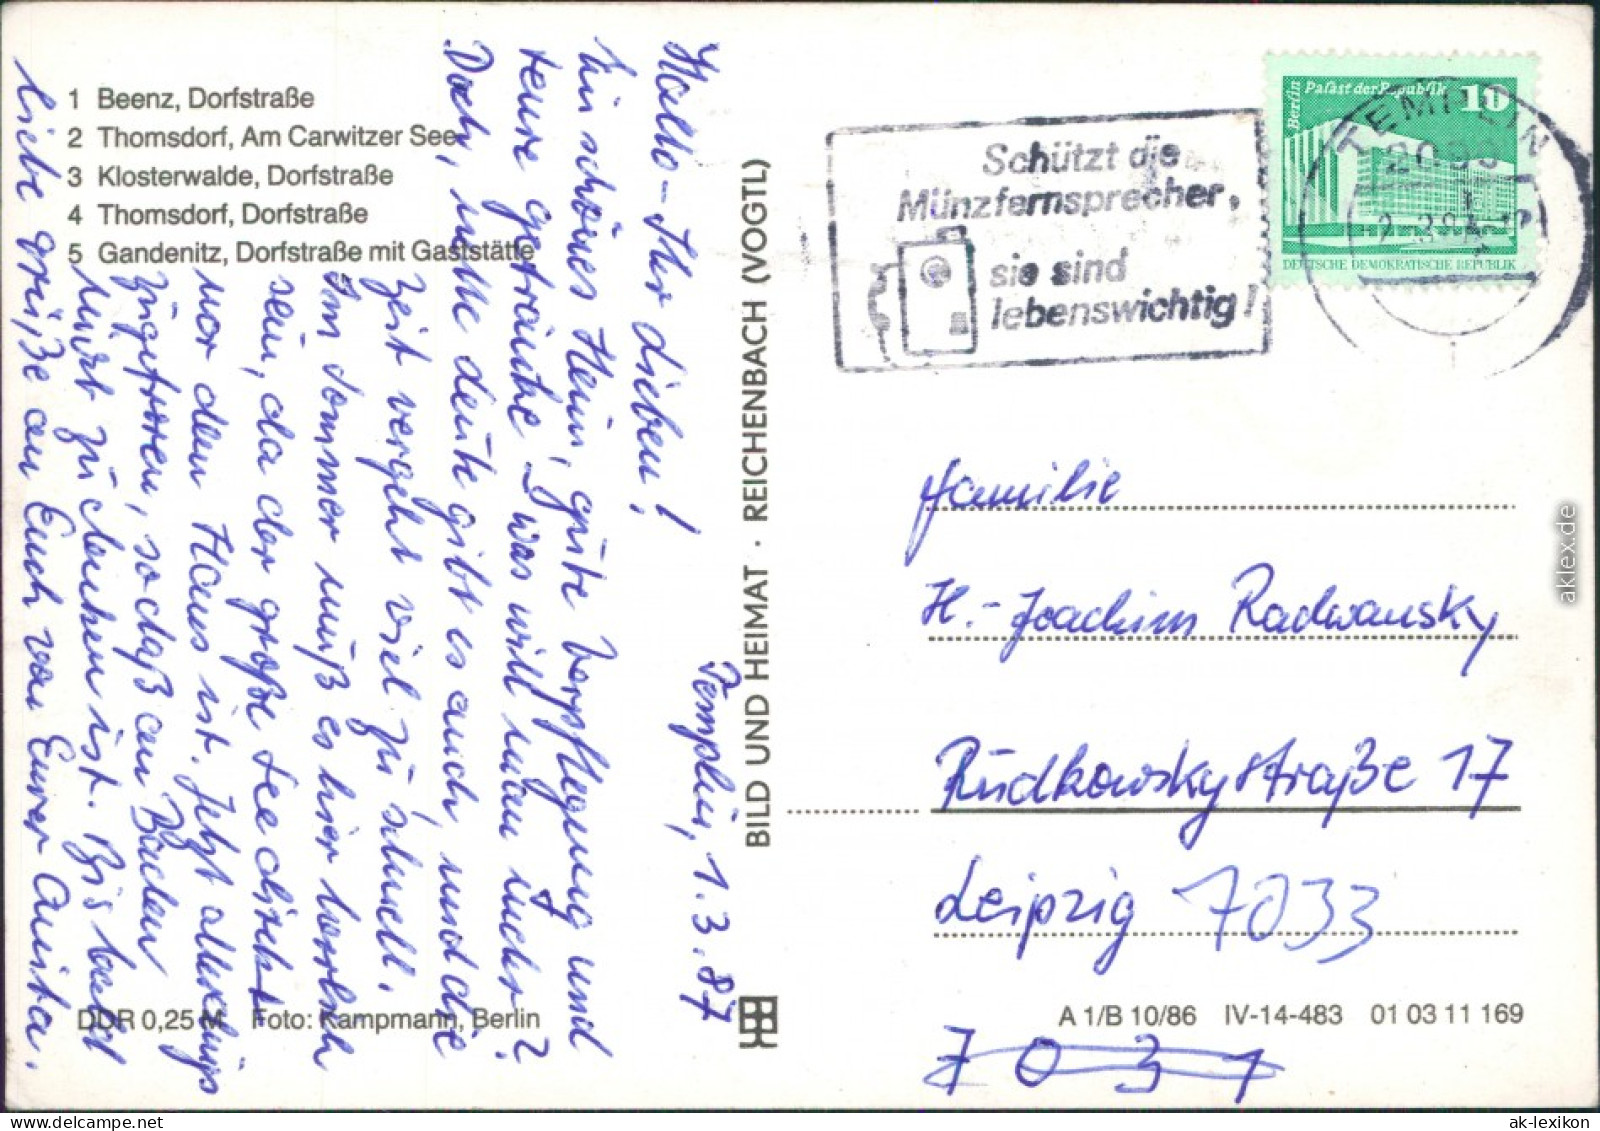 1 Beenz, Dorfstraße
2 Thomsdorf, Am Carwitzer See
3 Klosterwalde, Dorfstraße
4 Thomsdorf, Dorfstraße
5 Gandenitz, Dorfstraße mit Gaststätte
Templin, 1.3.87
Hallo - Ihr Lieben!
Ein schönes Heim, gute Verpflegung und
teure Getränke - was will man mehr?
Doch, nette Leute gibt es auch, und die
Zeit vergeht viel zu schnell.
Im Sommer muß es hier herrlich
sein, da der große See direkt
vor dem Haus ist. Jetzt allerdings
zugefroren, sodaß an Baden
nicht zu denken ist. Bis bald
liebe Grüße an Euch von Eurer Anita.
DDR 0,25 M Foto: Kampmann, Berlin
BILD UND HEIMAT · REICHENBACH (VOGTL)
Schützt die
Münzfernsprecher,
sie sind
lebenswichtig!
Berlin Palast der Republik 10
DEUTSCHE DEMOKRATISCHE REPUBLIK
TEMPLIN
2090
Familie
H.-Joachim Radwansky
Rudkowskystraße 17
Leipzig 7033
7031
A 1/B 10/86 IV-14-483 01 03 11 169
aklex.de
ak-lexikon